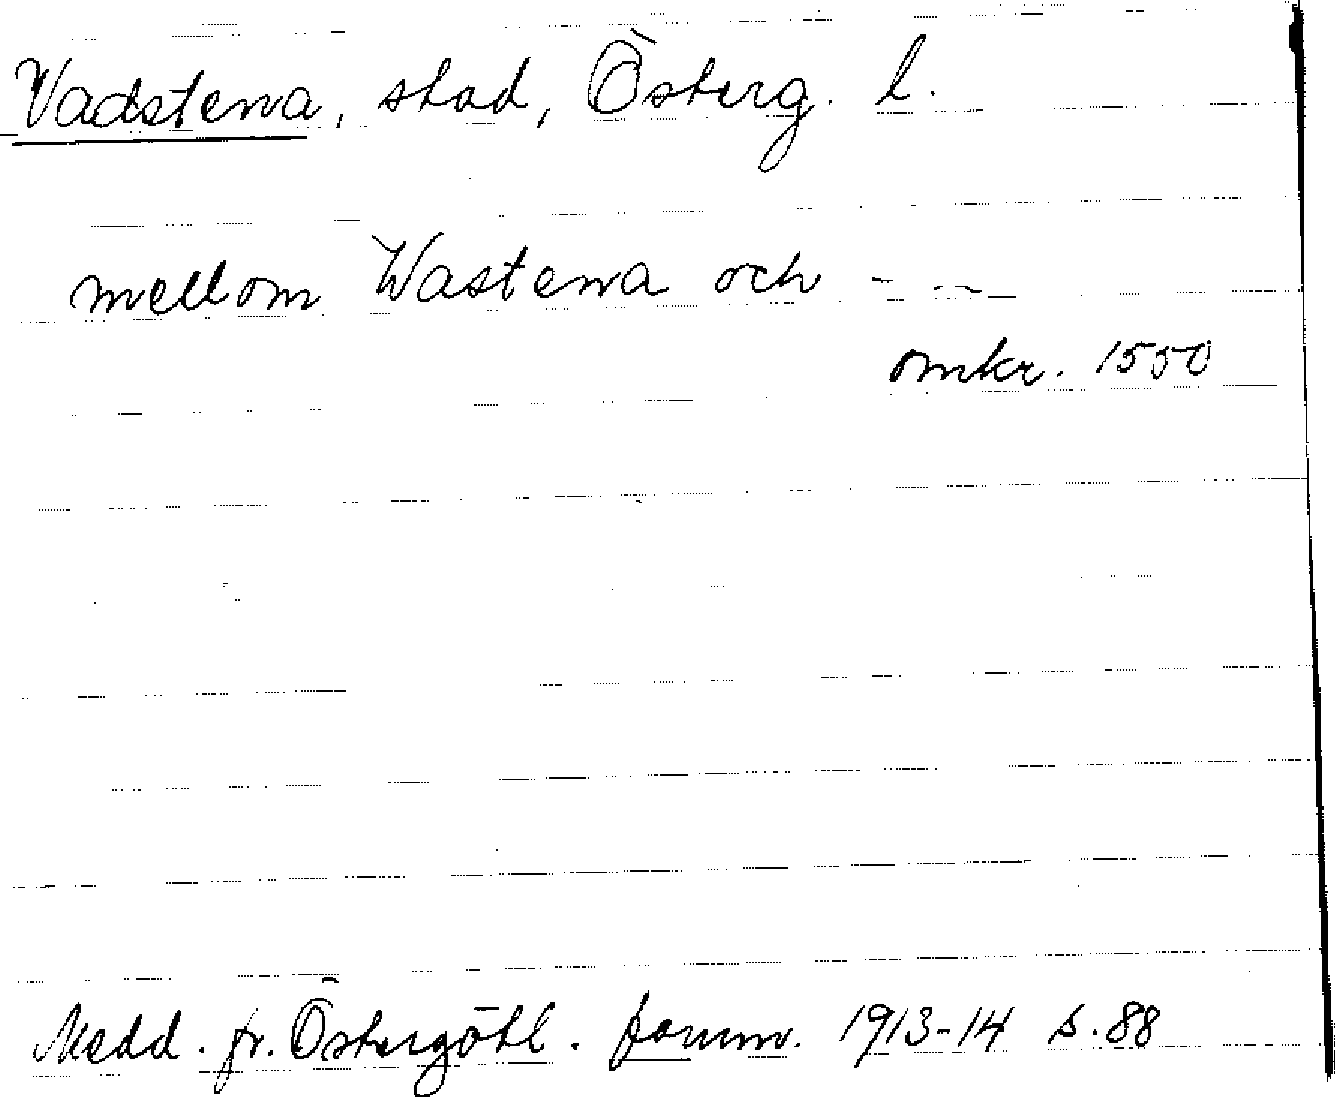 Vadstena, stad, Österg. l.
mellom Wastena och - - -
omkr. 1550
Medd. fr. Östergötl. fornm. 1913-14 s. 88